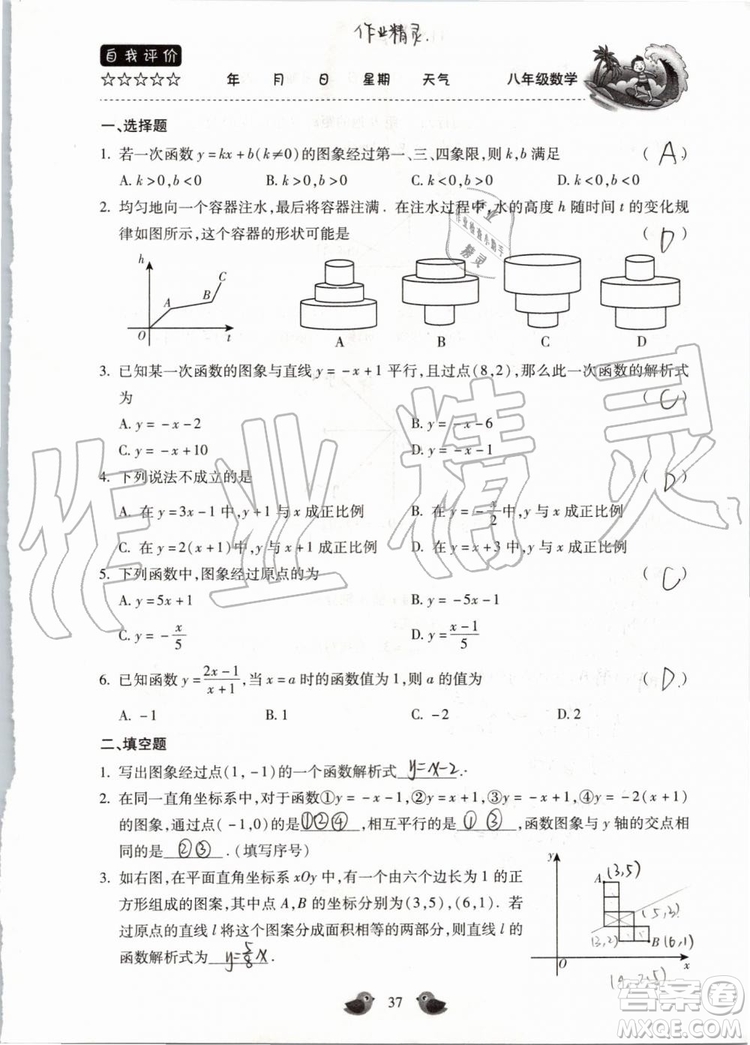 作业精灵.
自我评价
☆☆☆☆☆ 年 月 日 星期 天气 八年级数学
一、选择题
1. 若一次函数 y=kx+b(k≠0)的图象经过第一、三、四象限,则 k,b 满足 ( A )
A. k>0,b<0 B. k>0,b>0 C. k<0,b>0 D. k<0,b<0
2. 均匀地向一个容器注水,最后将容器注满. 在注水过程中,水的高度 h 随时间 t 的变化规
律如图所示,这个容器的形状可能是 ( D )
h A B C O t
A B C D
3. 已知某一次函数的图象与直线 y=-x+1 平行,且过点(8,2),那么此一次函数的解析式
为 ( C )
A. y=-x-2 B. y=-x-6
C. y=-x+10 D. y=-x-1
4. 下列说法不成立的是 ( D )
A. 在 y=3x-1中,y+1 与 x 成正比例 B. 在 y=-x/2中,y 与 x 成正比例
C. 在 y=2(x+1)中,y 与 x+1 成正比例 D. 在 y=x+3 中,y 与 x 成正比例
5. 下列函数中,图象经过原点的为 ( C )
A. y=5x+1 B. y=-5x-1
C. y=-x/5 D. y=(x-1)/5
6. 已知函数 y=(2x-1)/(x+1),当 x=a 时的函数值为 1,则 a 的值为 ( D )
A. -1 B. 1 C. -2 D. 2
二、填空题
1. 写出图象经过点(1,-1)的一个函数解析式 y=x-2.
2. 在同一直角坐标系中,对于函数①y=-x-1,②y=x+1,③y=-x+1,④y=-2(x+1)
的图象,通过点(-1,0)的是 ①②④ ,相互平行的是 ① ③ ,函数图象与 y 轴的交点相
同的是 ②③ .(填写序号)
3. 如右图,在平面直角坐标系 xOy 中,有一个由六个边长为 1 的正
方形组成的图案,其中点 A,B 的坐标分别为(3,5),(6,1). 若
过原点的直线 l 将这个图案分成面积相等的两部分,则直线 l 的
函数解析式为 y=5/8x .
y A (3,5)
(5,3)
(3,2) B (6,1)
O x
37
作业精灵
答案圈